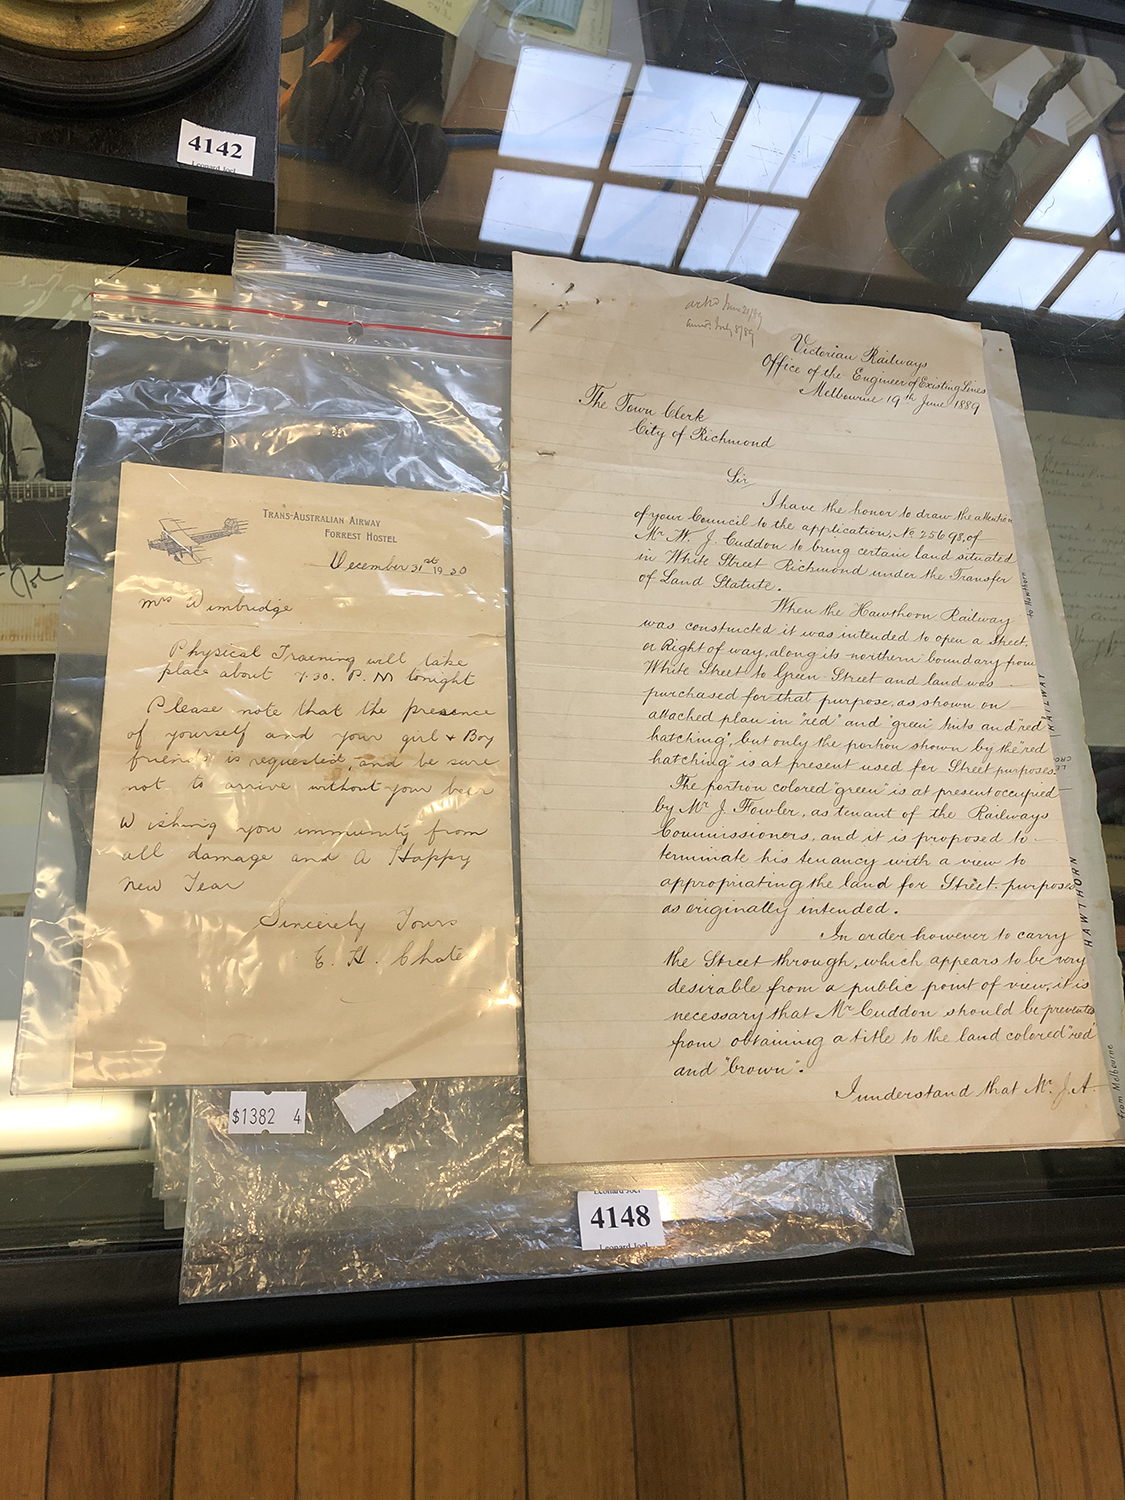 4142
Leonard Joel
TRANS-AUSTRALIAN AIRWAY
FORREST HOSTEL
December 31st 1930
Mrs Wimbridge
Physical Training will take
place about 7.30. P.M tonight
Please note that the presence
of yourself and your girl & Boy
friends is requested, and be sure
not to arrive without your beer
Wishing you immunity from
all damage and A Happy
New Year
Sincerely Yours
E. H.
$1382 4
Leonard Joel
4148
Leonard Joel
Victorian Railways
Office of the Engineer of Existing Lines
Melbourne 19th June 1889
The Town Clerk
City of Richmond
Sir
I have the honor to draw the attention
of your Council to the application, No 25698, of
Mr W. J. Cuddon to bring certain land situated
in White Street Richmond under the Transfer
of Land Statute.
When the Hawthorn Railway
was constructed it was intended to open a Street,
or Right of way, along its northern boundary from
White Street to Green Street and land was
purchased for that purpose, as shown on
attached plan in "red" and "green" tints and "red
hatching", but only the portion shown by the "red
hatching" is at present used for Street purposes.
The portion colored "green" is at present occupied
by Mr J. Fowler, as tenant of the Railways
Commissioners, and it is proposed to
terminate his tenancy with a view to
appropriating the land for Street purposes
as originally intended.
In order however to carry
the Street through, which appears to be very
desirable from a public point of view, it is
necessary that Mr Cuddon should be prevented
from obtaining a title to the land colored "red"
and "brown".
I understand that Mr J. A.
to Hawthorn
RAILWAY
HAWTHORN
from Melbourne